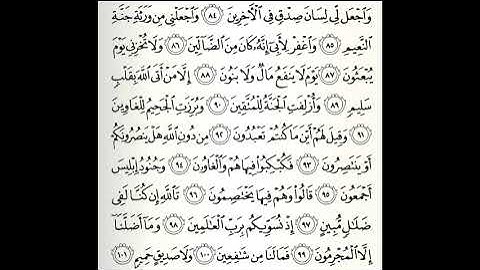 وَاجْعَل لِّي لِسَانَ صِدْقٍ فِي الْآخِرِينَ ٨٤ وَاجْعَلْنِي مِن وَرَثَةِ جَنَّةِ
النَّعِيمِ ٨٥ وَاغْفِرْ لِأَبِي إِنَّهُ كَانَ مِنَ الضَّالِّينَ ٨٦ وَلَا تُخْزِنِي يَوْمَ
يُبْعَثُونَ ٨٧ يَوْمَ لَا يَنفَعُ مَالٌ وَلَا بَنُونَ ٨٨ إِلَّا مَنْ أَتَى اللَّهَ بِقَلْبٍ
سَلِيمٍ ٨٩ وَأُزْلِفَتِ الْجَنَّةُ لِلْمُتَّقِينَ ٩٠ وَبُرِّزَتِ الْجَحِيمُ لِلْغَاوِينَ
٩١ وَقِيلَ لَهُمْ أَيْنَ مَا كُنتُمْ تَعْبُدُونَ ٩٢ مِن دُونِ اللَّهِ هَلْ يَنصُرُونَكُمْ
أَوْ يَنتَصِرُونَ ٩٣ فَكُبْكِبُوا فِيهَا هُمْ وَالْغَاوُونَ ٩٤ وَجُنُودُ إِبْلِيسَ
أَجْمَعُونَ ٩٥ قَالُوا وَهُمْ فِيهَا يَخْتَصِمُونَ ٩٦ تَاللَّهِ إِن كُنَّا لَفِي
ضَلَالٍ مُّبِينٍ ٩٧ إِذْ نُسَوِّيكُم بِرَبِّ الْعَالَمِينَ ٩٨ وَمَا أَضَلَّنَا
إِلَّا الْمُجْرِمُونَ ٩٩ فَمَا لَنَا مِن شَافِعِينَ ١٠٠ وَلَا صَدِيقٍ حَمِيمٍ ١٠١